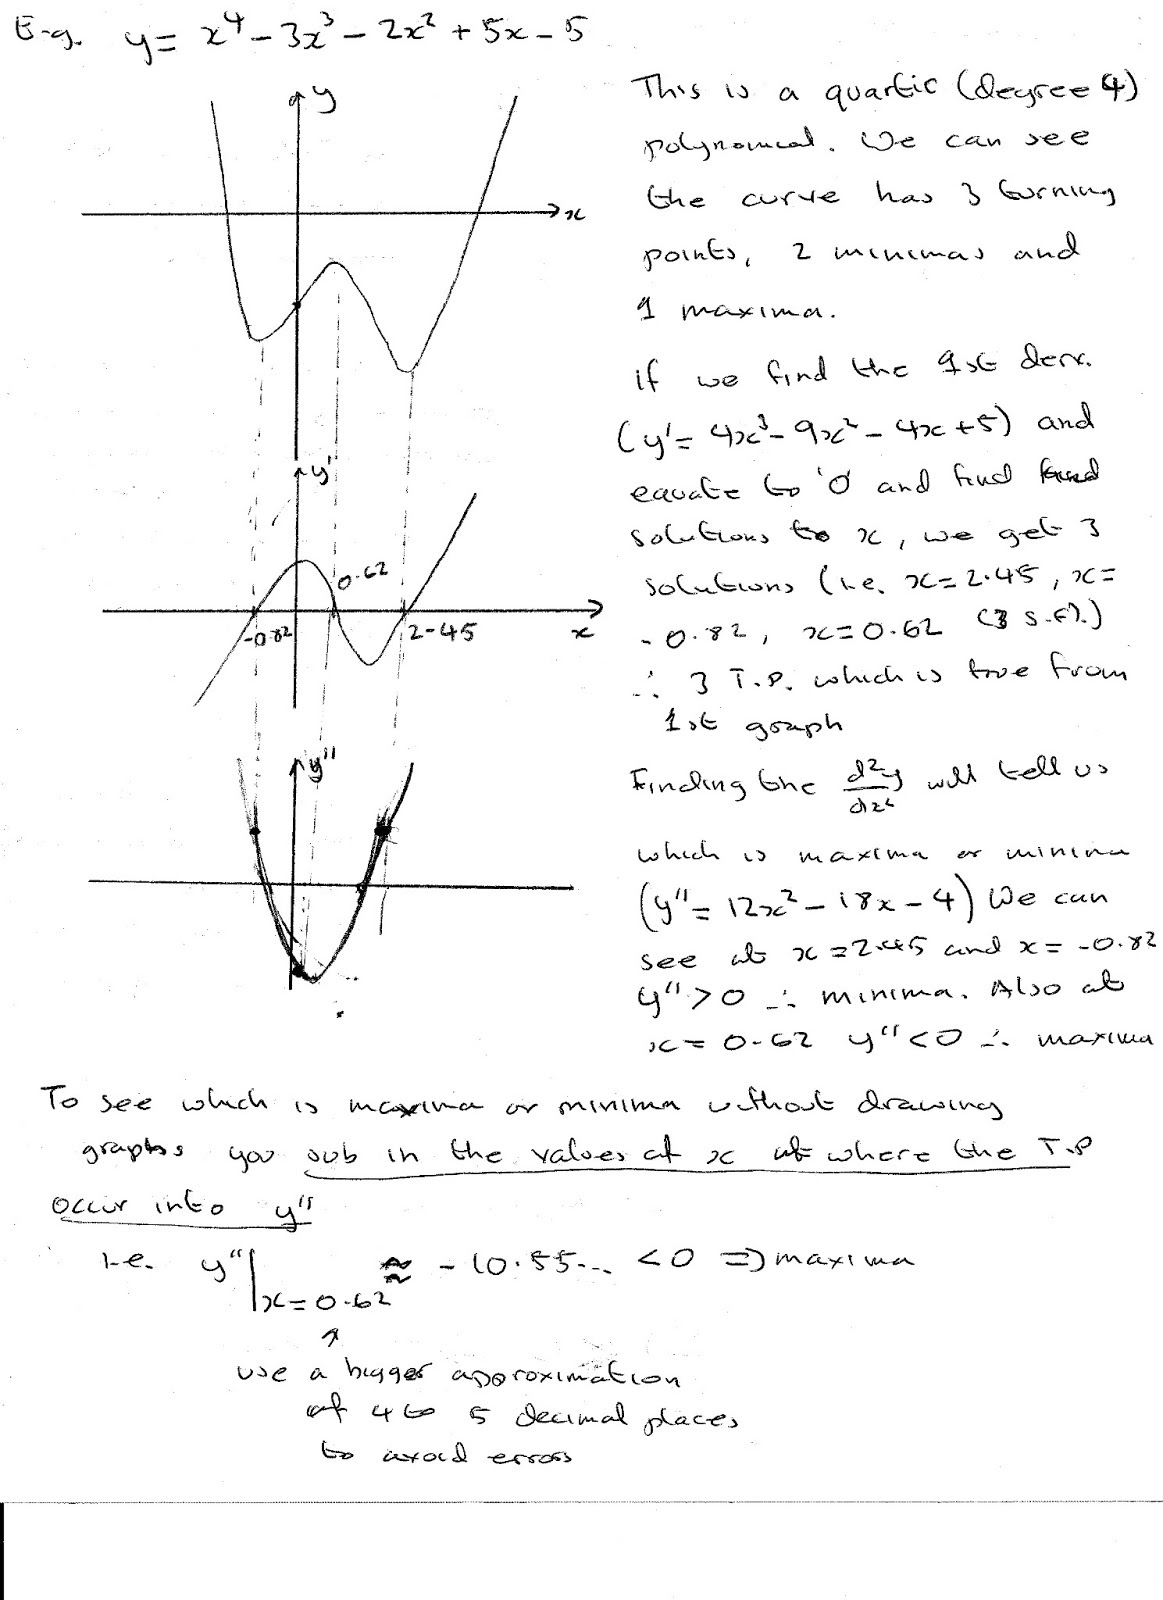 E.g. y = x⁴ - 3x³ - 2x² + 5x - 5
y
x
This is a quartic (degree 4)
polynomial. We can see
the curve has 3 turning
points, 2 minimas and
1 maxima.
if we find the 1st derv.
(y' = 4x³ - 9x² - 4x + 5) and
equate to '0' and find
solutions to x, we get 3
solutions (i.e. x = 2.45, x =
-0.82, x = 0.62 (3 s.f).)
∴ 3 T.P. which is true from
1st graph
y'
0.62
-0.82
2.45
x
y''
Finding the d²y/dx² will tell us
which is maxima or minima
(y'' = 12x² - 18x - 4) We can
see at x = 2.45 and x = -0.82
y'' > 0 ∴ minima. Also at
x = 0.62 y'' < 0 ∴ maxima
To see which is maxima or minima without drawing
graphs you sub in the values of x at where the T.P
occur into y''
i.e. y''|x = 0.62 ≈ -10.55... < 0 ⇒ maxima
use a bigger approximation
of 4 to 5 decimal places
to avoid errors